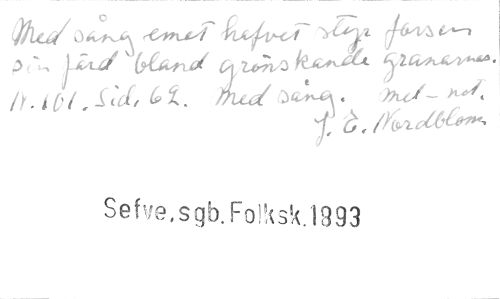 Med sång emot hafvet styr forsen
sin färd bland grönskande granarnas.
N. 101. Sid. 62. Med sång. mel-not.
J. E. Nordblom
Sefve, sgb. Folksk. 1893